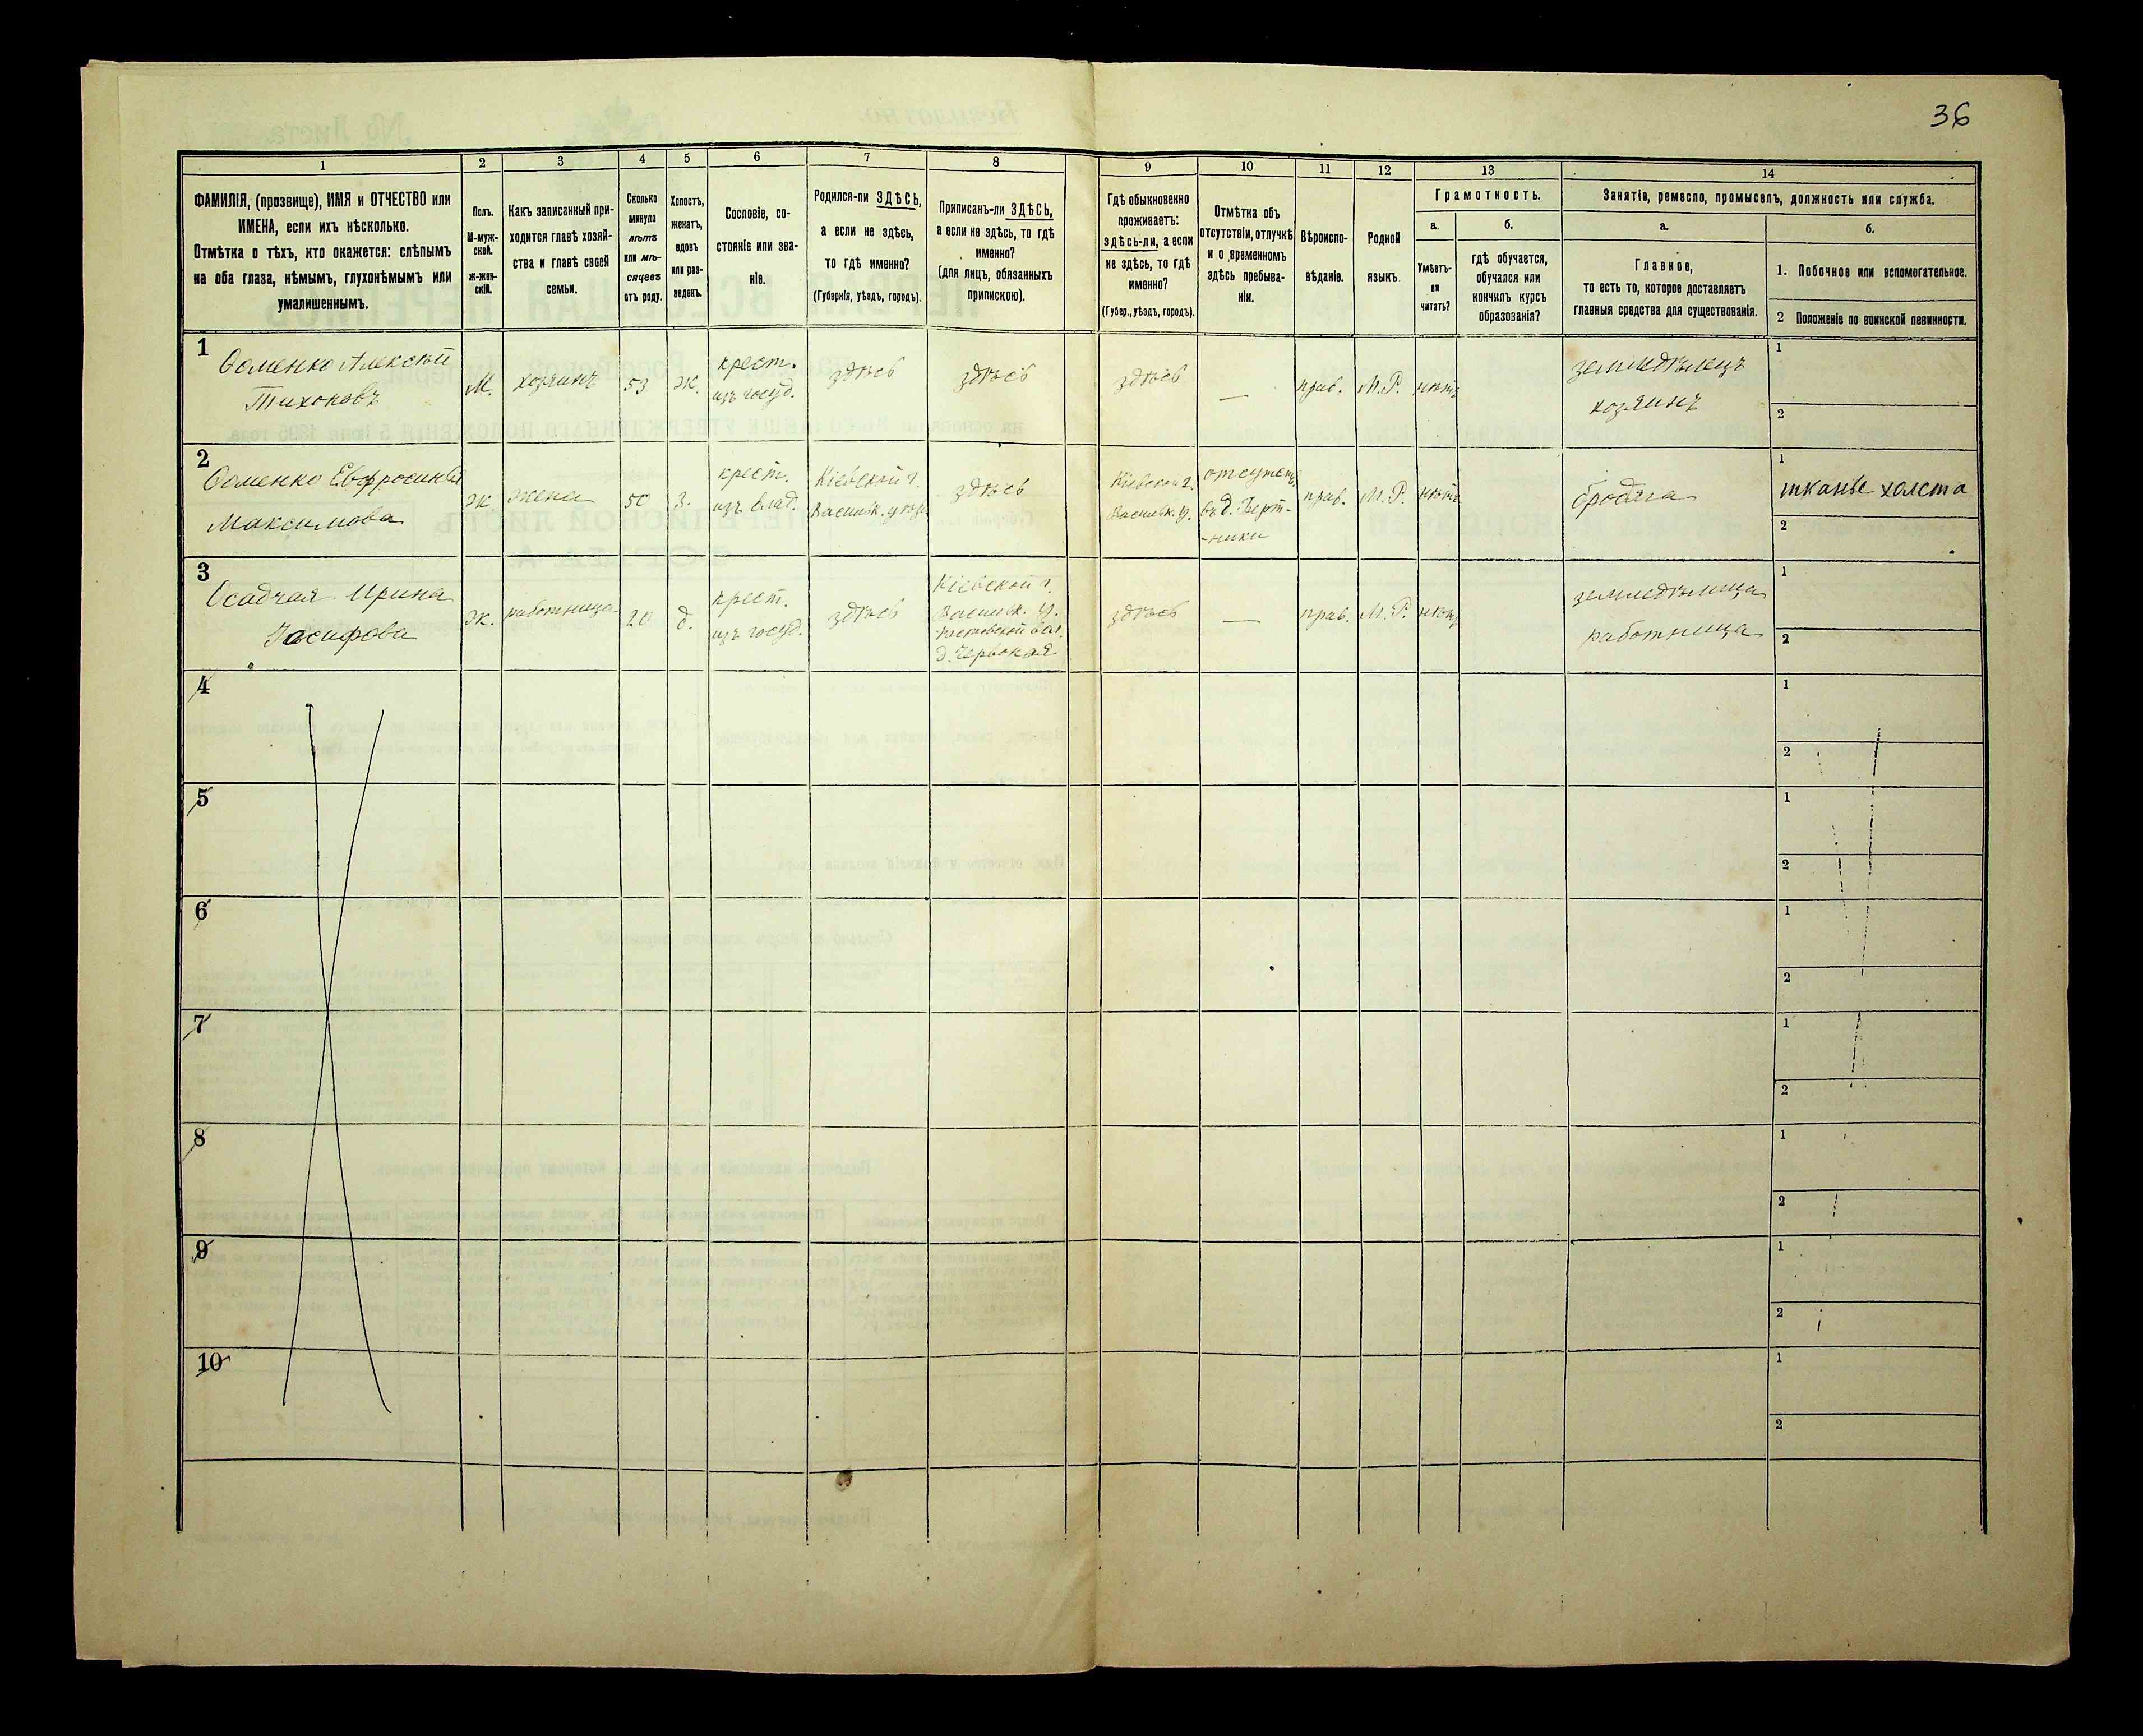 36
1
2
3
4
5
6
7
8
9
10
11
12
13
14
ФАМИЛІЯ, (прозвище), ИМЯ и ОТЧЕСТВО или
ИМЕНА, если ихъ нѣсколько.
Отмѣтка о тѣхъ, кто окажется: слѣпымъ
на оба глаза, нѣмымъ, глухонѣмымъ или
умалишеннымъ.
Полъ.
М-муж-
ской.
Ж-жен-
скій.
Какъ записанный при-
ходится главѣ хозяй-
ства и главѣ своей
семьи.
Сколько
минуло
лѣтъ
или мѣ-
сяцевъ
отъ роду.
Холостъ,
женатъ,
вдовъ
или раз-
веденъ.
Сословіе, со-
стояніе или зва-
ніе.
Родился-ли ЗДѢСЬ,
а если не здѣсь,
то гдѣ именно?
(Губернія, уѣздъ, городъ).
Приписанъ-ли ЗДѢСЬ,
а если не здѣсь, то гдѣ
именно?
(для лицъ, обязанныхъ
припискою).
Гдѣ обыкновенно
проживаетъ:
здѣсь-ли, а если
не здѣсь, то гдѣ
именно?
(Губер., уѣздъ, городъ).
Отмѣтка объ
отсутствіи, отлучкѣ
и о временномъ
здѣсь пребыва-
ніи.
Вѣроиспо-
вѣданіе.
Родной
языкъ.
Грамотность.
а.
Умѣетъ-
ли
читать?
б.
гдѣ обучается,
обучался или
кончилъ курсъ
образованія?
Занятіе, ремесло, промыселъ, должность или служба.
а.
Главное,
то есть то, которое доставляетъ
главныя средства для существованія.
б.
1. Побочное или вспомогательное.
2 Положеніе по воинской повинности.
1
Алексѣй
Тихоновъ
М.
хозяинъ
53
ж.
крест.
изъ госуд.
здѣсь
здѣсь
здѣсь
—
прав.
М.Р.
нѣтъ
земледѣлецъ
хозяинъ
1
2
2
Евфросинья
Максимова
ж.
жена
50
з.
крест.
изъ влад.
Кіевской г.
Васильк. уѣзд.
здѣсь
Кіевской г.
Васильк. у.
отсутств.
въ д.
-ники
прав.
М.Р.
нѣтъ
бродяга
1
тканье холста
2
3
Осадчая Ирина
Іосифова
ж.
работница
20
д.
крест.
изъ госуд.
здѣсь
Кіевской г.
Васильк. у.
вол.
д. Червоная
здѣсь
—
прав.
М.Р.
нѣтъ
земледѣлица
работница
1
2
4
1
2
5
1
2
6
1
2
7
1
2
8
1
2
9
1
2
10
1
2